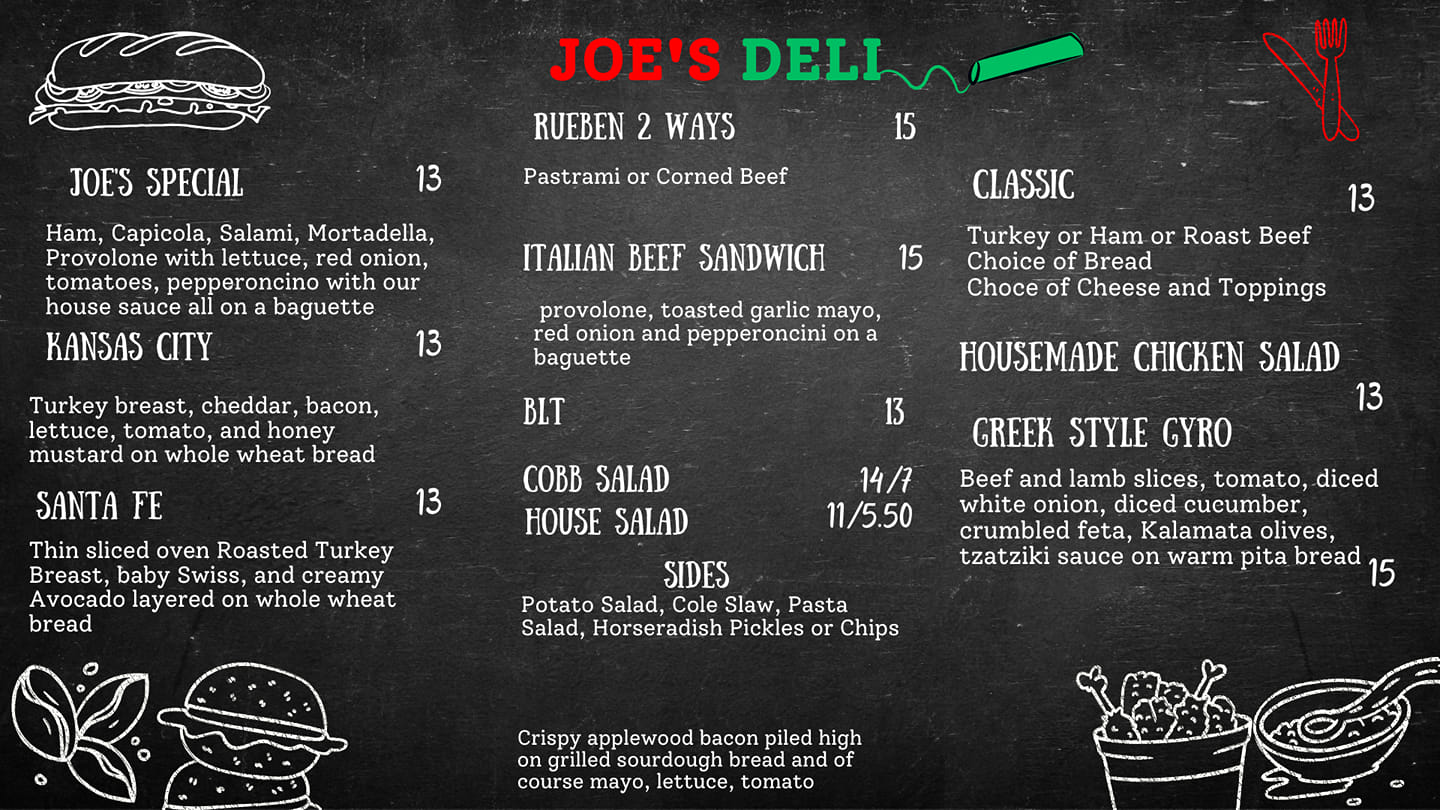 JOE'S DELI
JOE'S SPECIAL 13
Ham, Capicola, Salami, Mortadella,
Provolone with lettuce, red onion,
tomatoes, pepperoncino with our
house sauce all on a baguette
KANSAS CITY 13
Turkey breast, cheddar, bacon,
lettuce, tomato, and honey
mustard on whole wheat bread
SANTA FE 13
Thin sliced oven Roasted Turkey
Breast, baby Swiss, and creamy
Avocado layered on whole wheat
bread
RUEBEN 2 WAYS 15
Pastrami or Corned Beef
ITALIAN BEEF SANDWICH 15
provolone, toasted garlic mayo,
red onion and pepperoncini on a
baguette
BLT 13
COBB SALAD 14/7
HOUSE SALAD 11/5.50
SIDES
Potato Salad, Cole Slaw, Pasta
Salad, Horseradish Pickles or Chips
Crispy applewood bacon piled high
on grilled sourdough bread and of
course mayo, lettuce, tomato
CLASSIC 13
Turkey or Ham or Roast Beef
Choice of Bread
Choce of Cheese and Toppings
HOUSEMADE CHICKEN SALAD
13
GREEK STYLE GYRO
Beef and lamb slices, tomato, diced
white onion, diced cucumber,
crumbled feta, Kalamata olives,
tzatziki sauce on warm pita bread
15